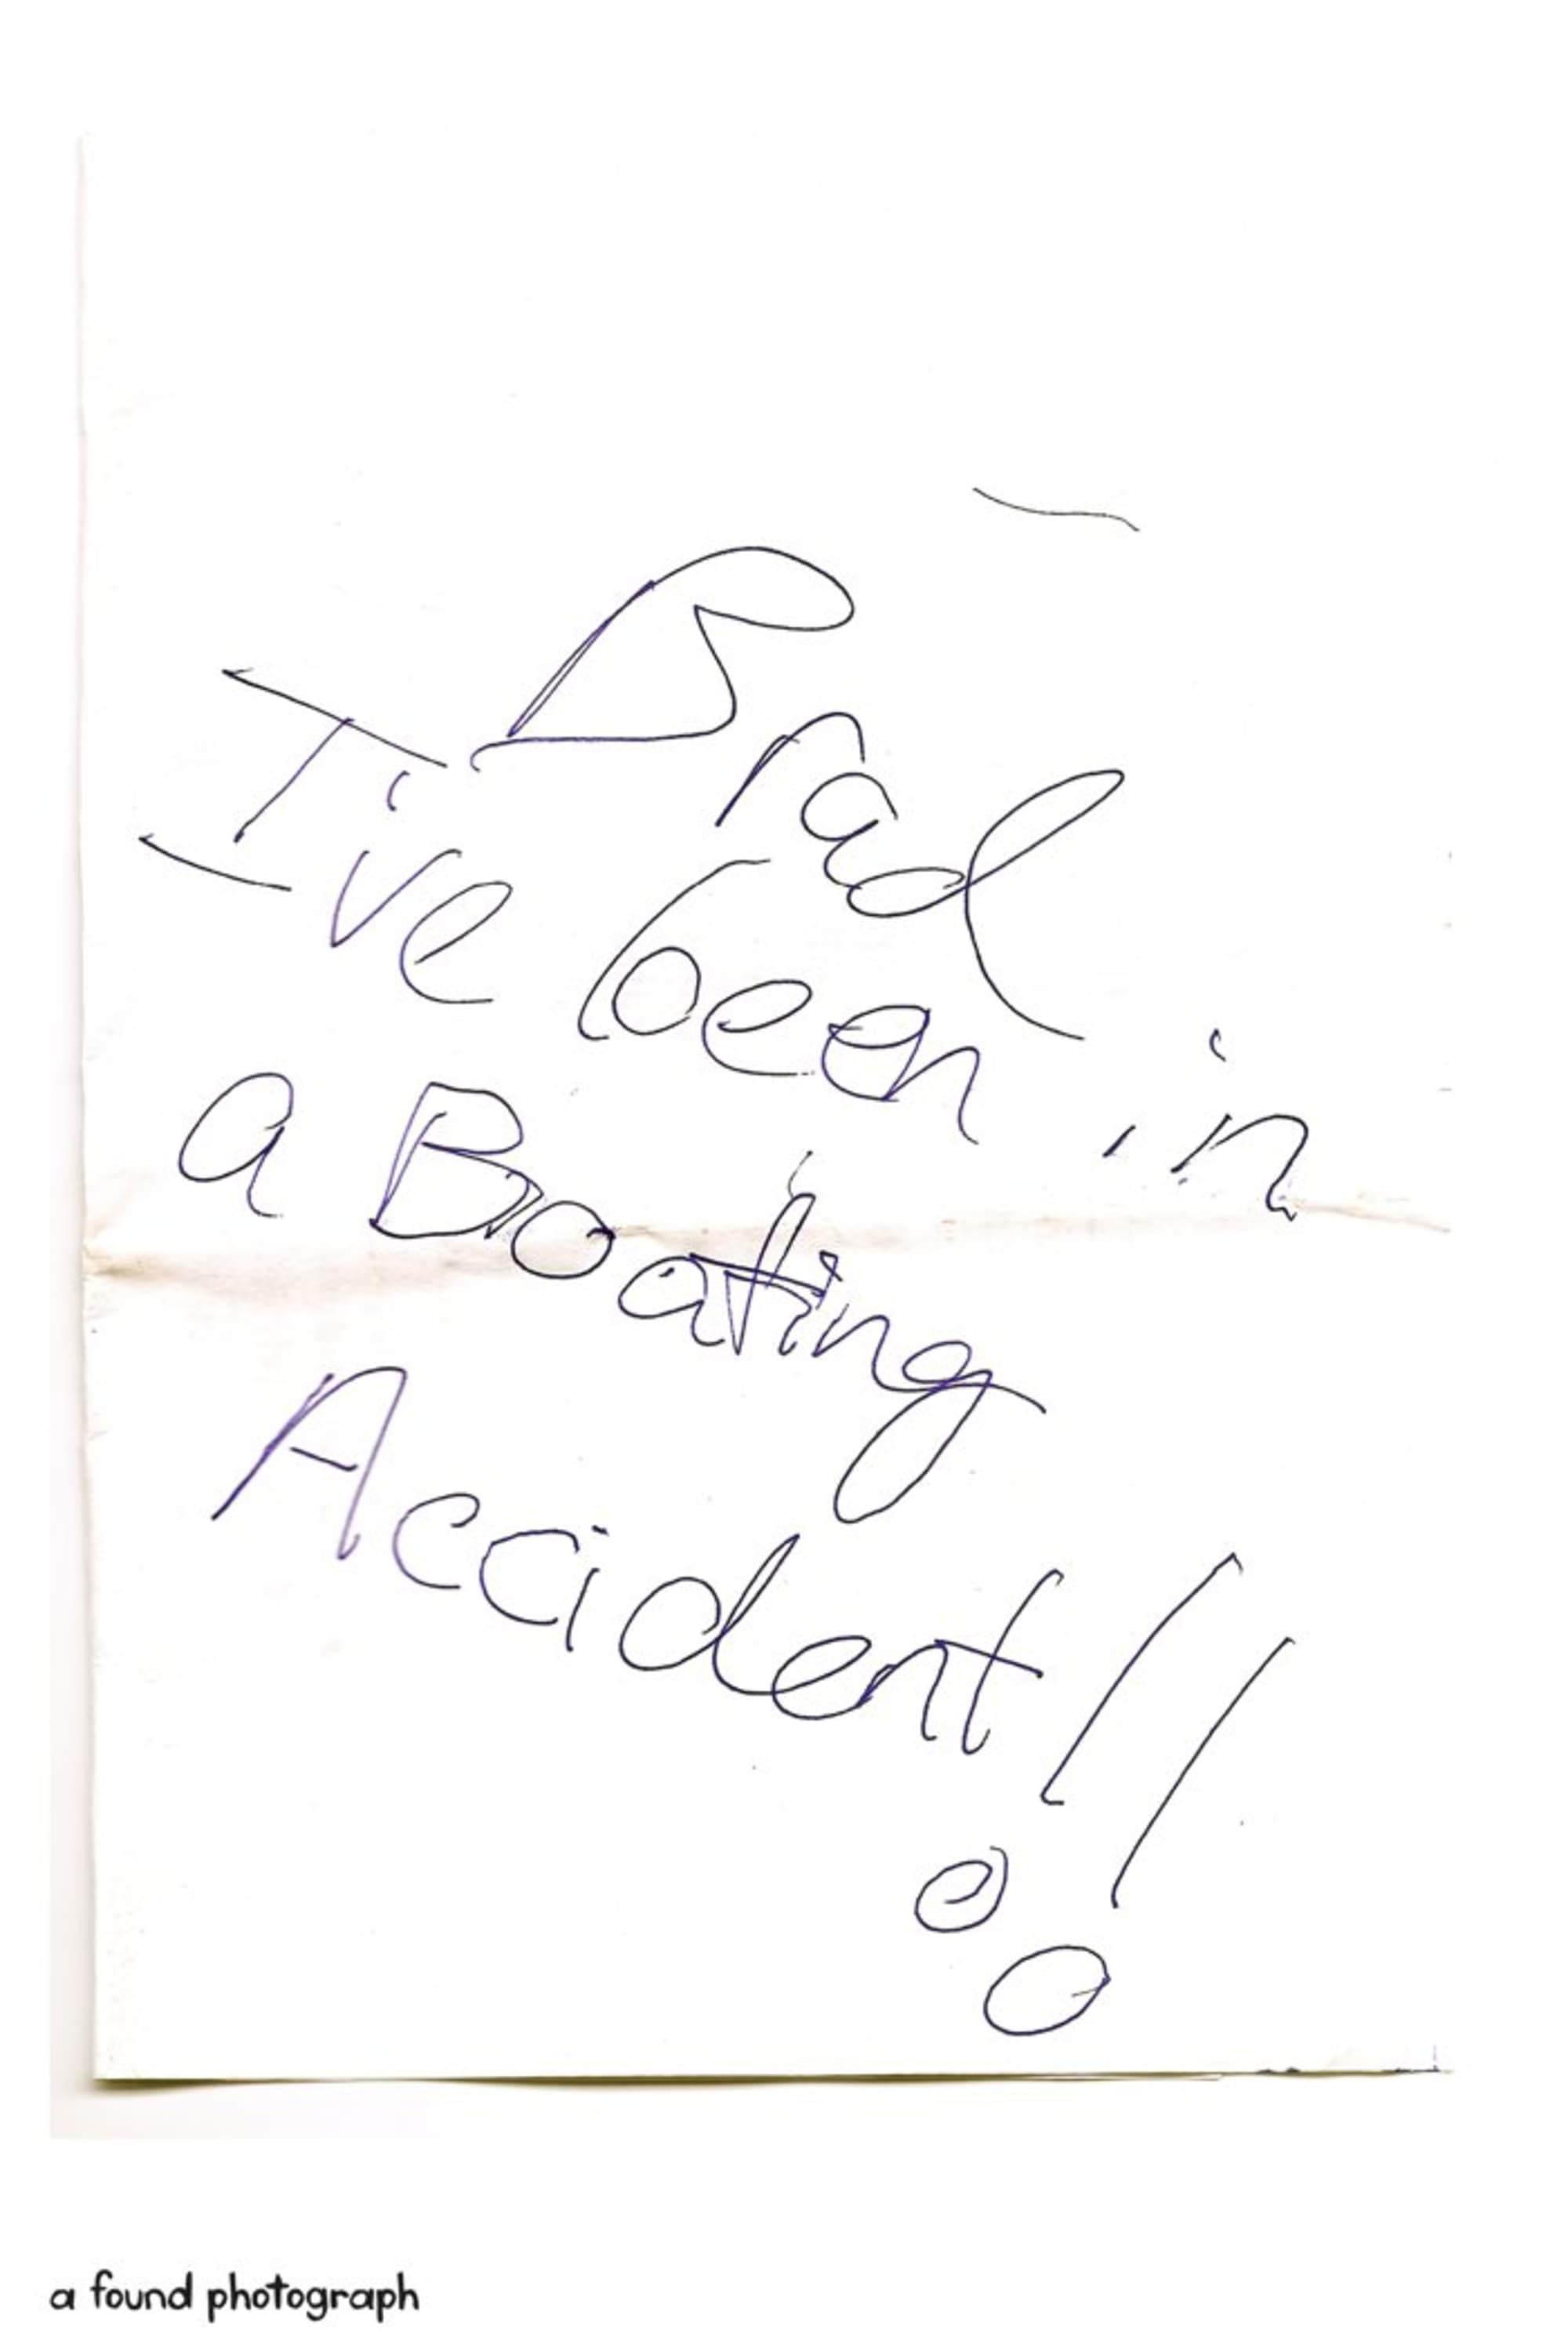 Brad
I've been in
a Boating
Accident!!
a found photograph